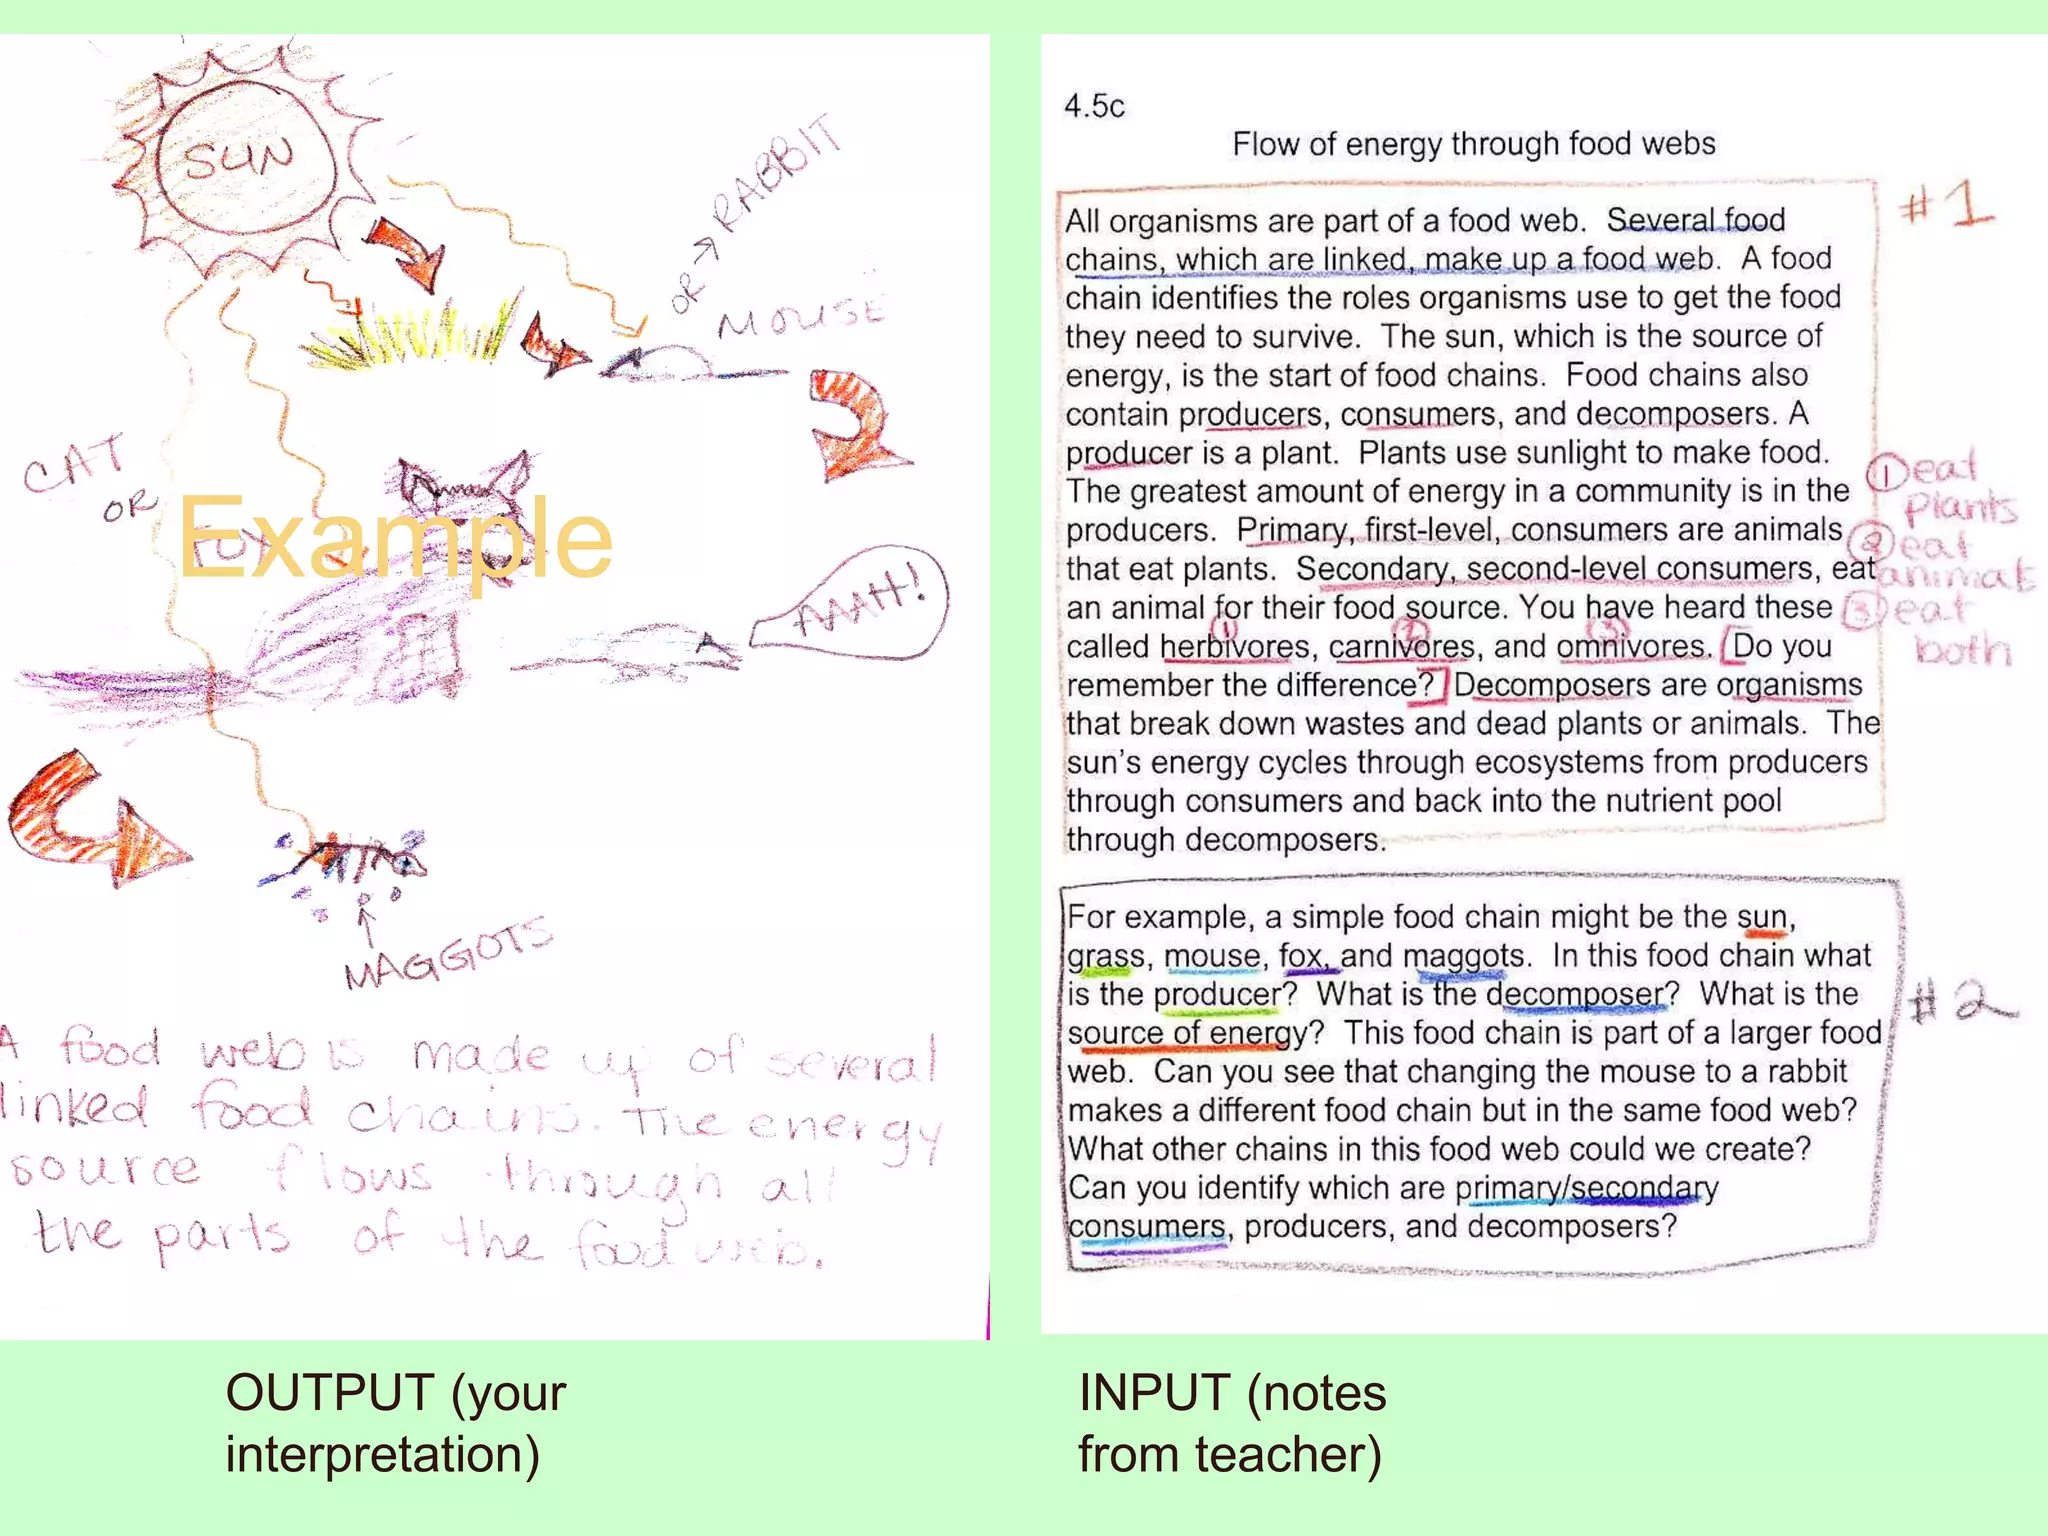 SUN
OR → RABBIT
MOUSE
CAT
OR
FOX
Example
AAAH!
MAGGOTS
A food web is made up of several
linked food chains. The energy
source flows through all
the parts of the food web.
OUTPUT (your
interpretation)
4.5c
Flow of energy through food webs
#1
All organisms are part of a food web. Several food
chains, which are linked, make up a food web. A food
chain identifies the roles organisms use to get the food
they need to survive. The sun, which is the source of
energy, is the start of food chains. Food chains also
contain producers, consumers, and decomposers. A
producer is a plant. Plants use sunlight to make food.
The greatest amount of energy in a community is in the
producers. Primary, first-level, consumers are animals
that eat plants. Secondary, second-level consumers, eat
an animal for their food source. You have heard these
1 2 3
called herbivores, carnivores, and omnivores. [Do you
remember the difference?] Decomposers are organisms
that break down wastes and dead plants or animals. The
sun's energy cycles through ecosystems from producers
through consumers and back into the nutrient pool
through decomposers.
1 eat
plants
2 eat
animals
3 eat
both
For example, a simple food chain might be the sun,
grass, mouse, fox, and maggots. In this food chain what
is the producer? What is the decomposer? What is the
source of energy? This food chain is part of a larger food
web. Can you see that changing the mouse to a rabbit
makes a different food chain but in the same food web?
What other chains in this food web could we create?
Can you identify which are primary/secondary
consumers, producers, and decomposers?
#2
INPUT (notes
from teacher)